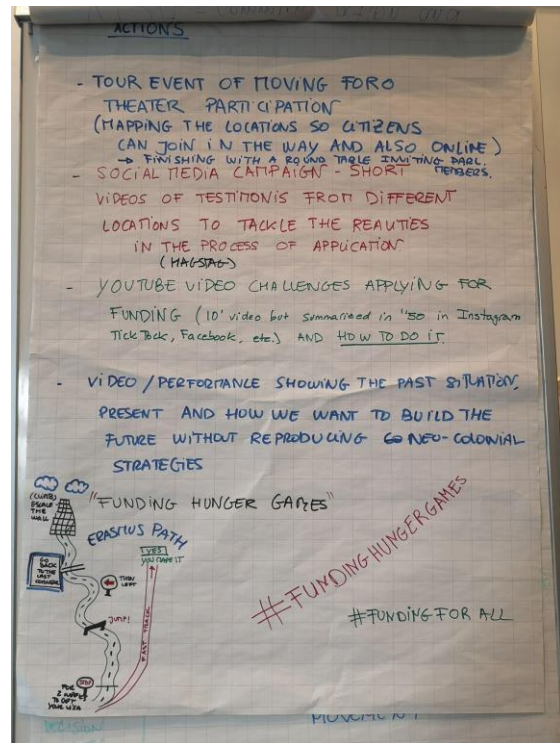 ACTIONS
- TOUR EVENT OF MOVING FORO
THEATER PARTICIPATION
(MAPPING THE LOCATIONS SO CITIZENS
CAN JOIN IN THE WAY AND ALSO ONLINE)
→ FINISHING WITH A ROUND TABLE INVITING PARL.
MEMBERS.
- SOCIAL MEDIA CAMPAIGN - SHORT
VIDEOS OF TESTIMONIS FROM DIFFERENT
LOCATIONS TO TACKLE THE REALITIES
IN THE PROCESS OF APPLICATION
(HAGSTAG)
- YOUTUBE VIDEO CHALLENGES APPLYING FOR
FUNDING (10' video but summarised in "50 in Instagram
TickTock, Facebook, etc.) AND HOW TO DO IT
- VIDEO / PERFORMANCE SHOWING THE PAST SITUATION,
PRESENT AND HOW WE WANT TO BUILD THE
FUTURE WITHOUT REPRODUCING NEO-COLONIAL
STRATEGIES
"FUNDING HUNGER GAMES"
(CLIMB)
ESCALE
THE
WALL
ERASMUS PATH
YES
YOU MADE IT
GO
BACK
TO THE
LAST
TURN
LEFT
JUMP!
FAST TRACK
STOP
FOR
2 WEEKS
TO GET
YOUR VISA
#FUNDINGHUNGERGAMES
#FUNDING FOR ALL
DECISION
MOVEMENT